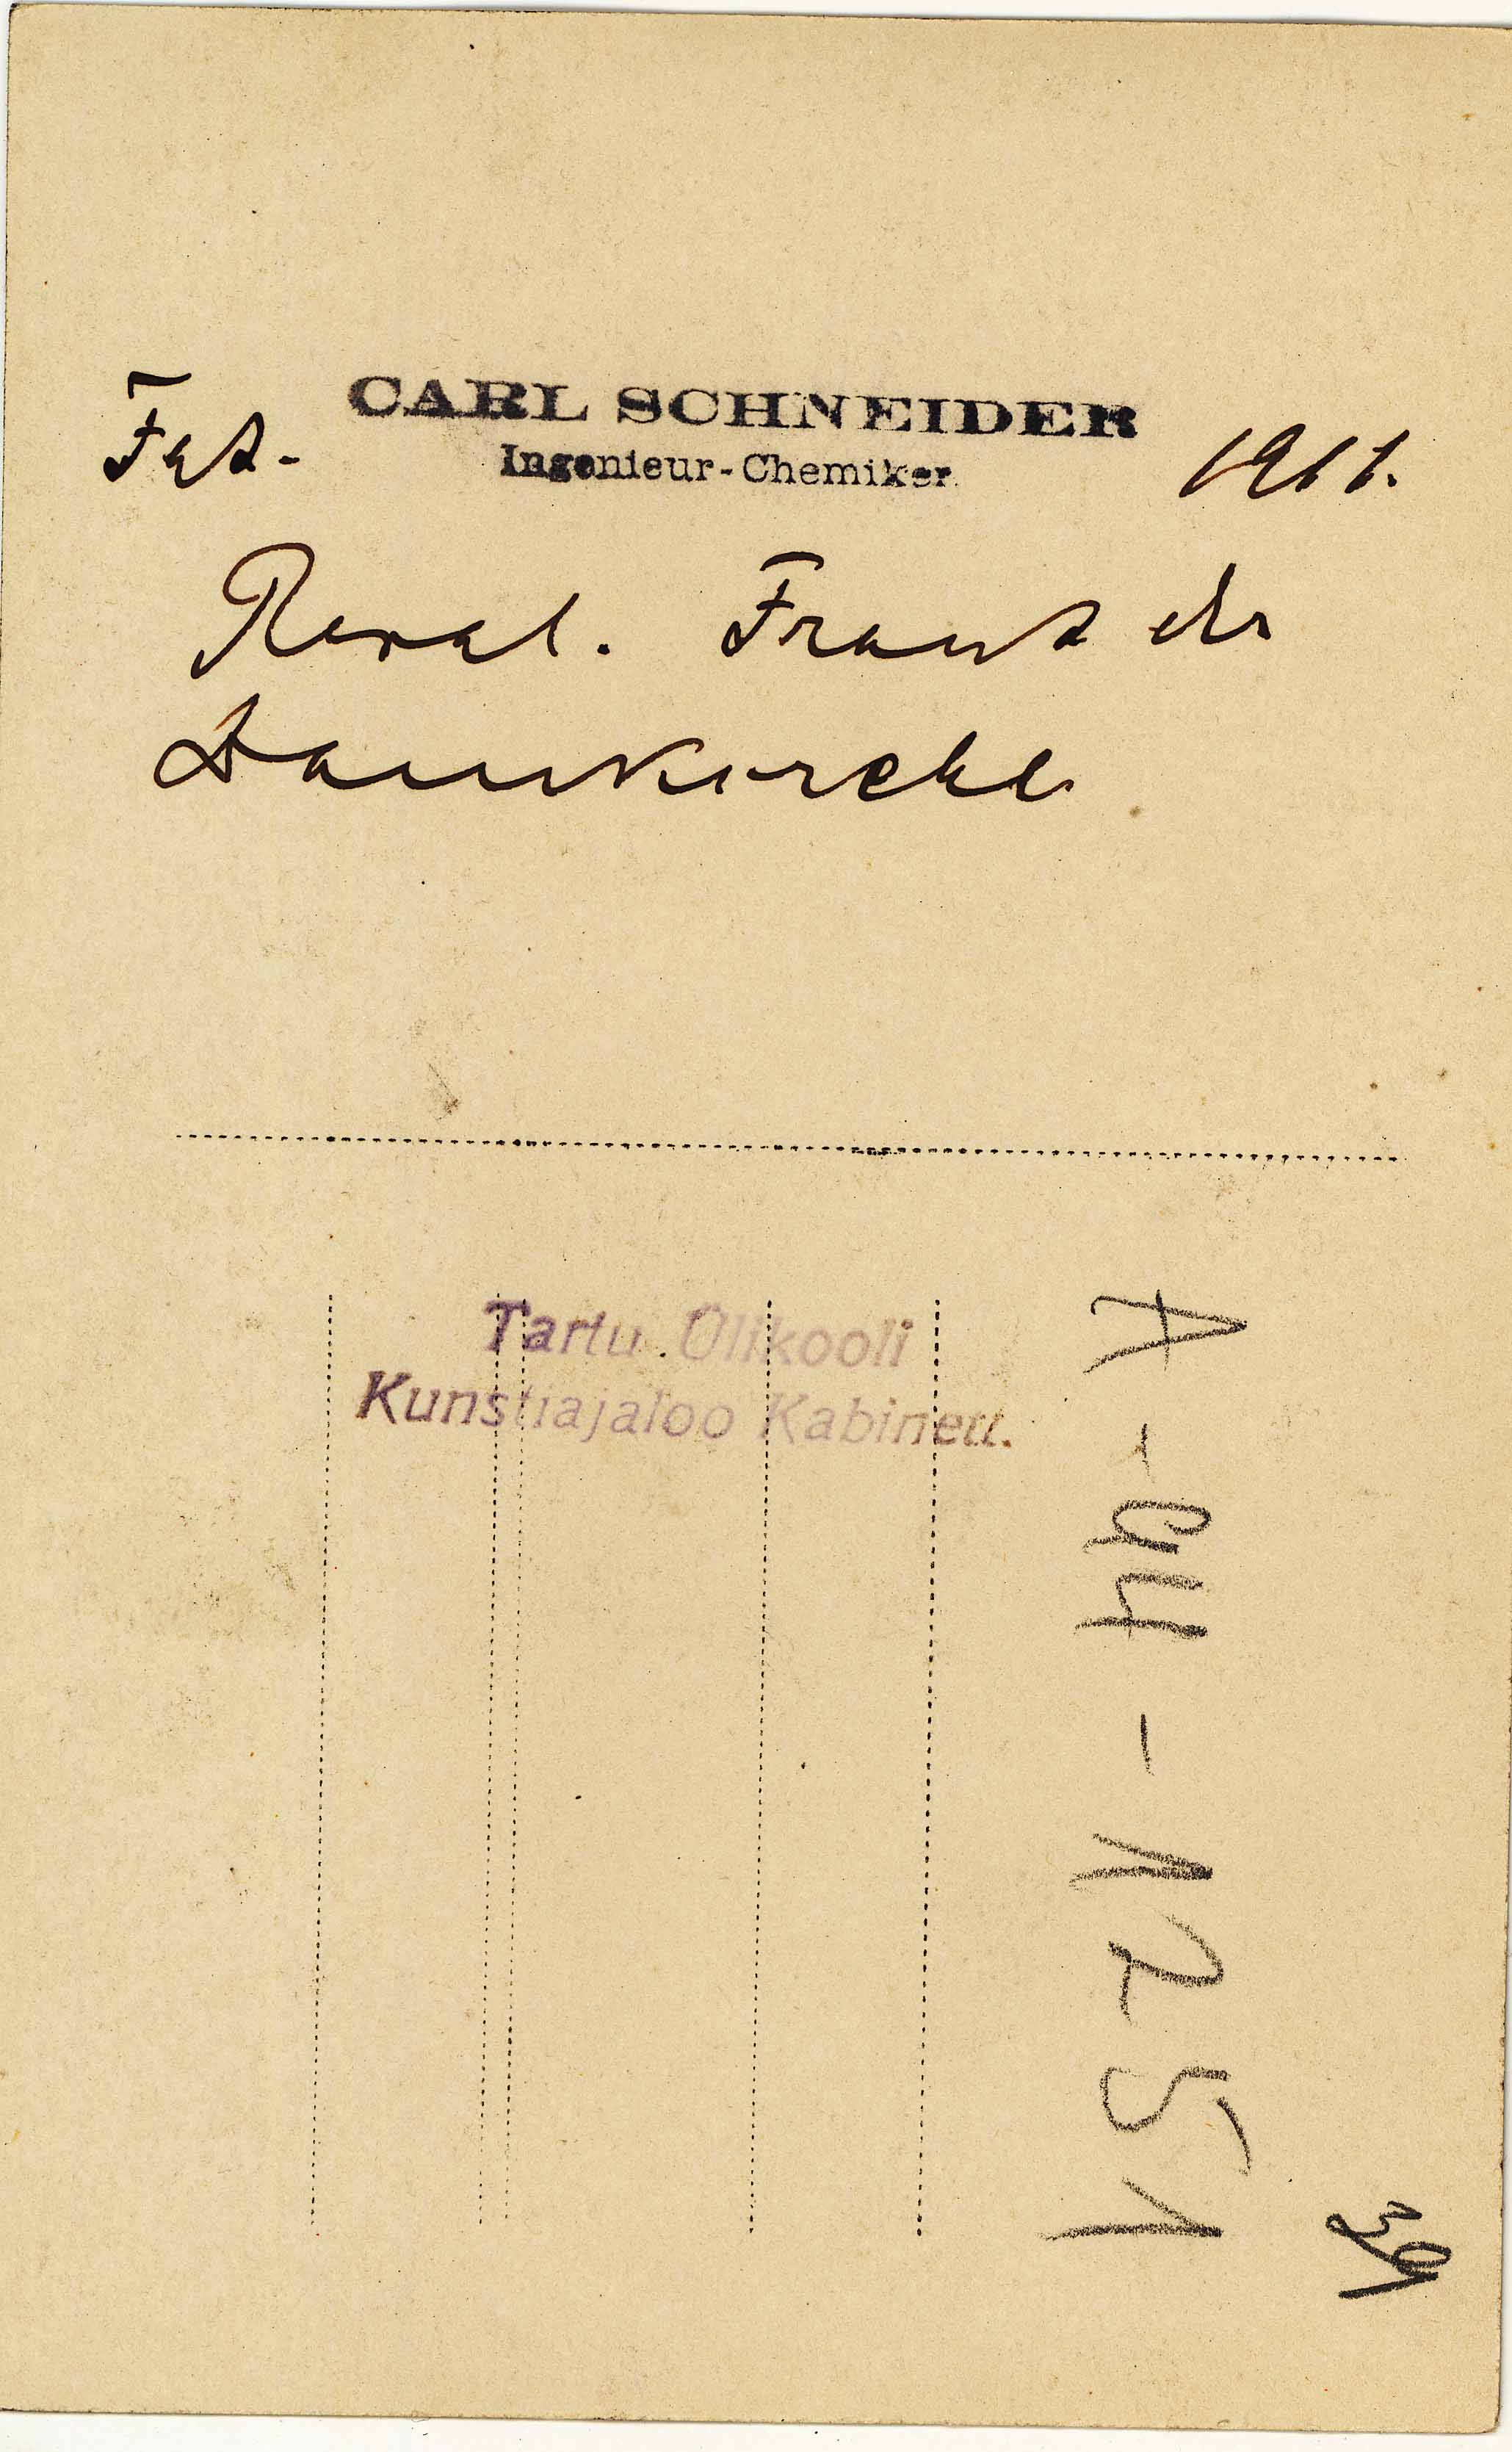 CARL SCHNEIDER
Ingenieur-Chemiker
Fot- 1911.
Reval. Front der
Domkirche
Tartu Ülikooli
Kunstiajaloo Kabinett.
A - 94 - 1251
39